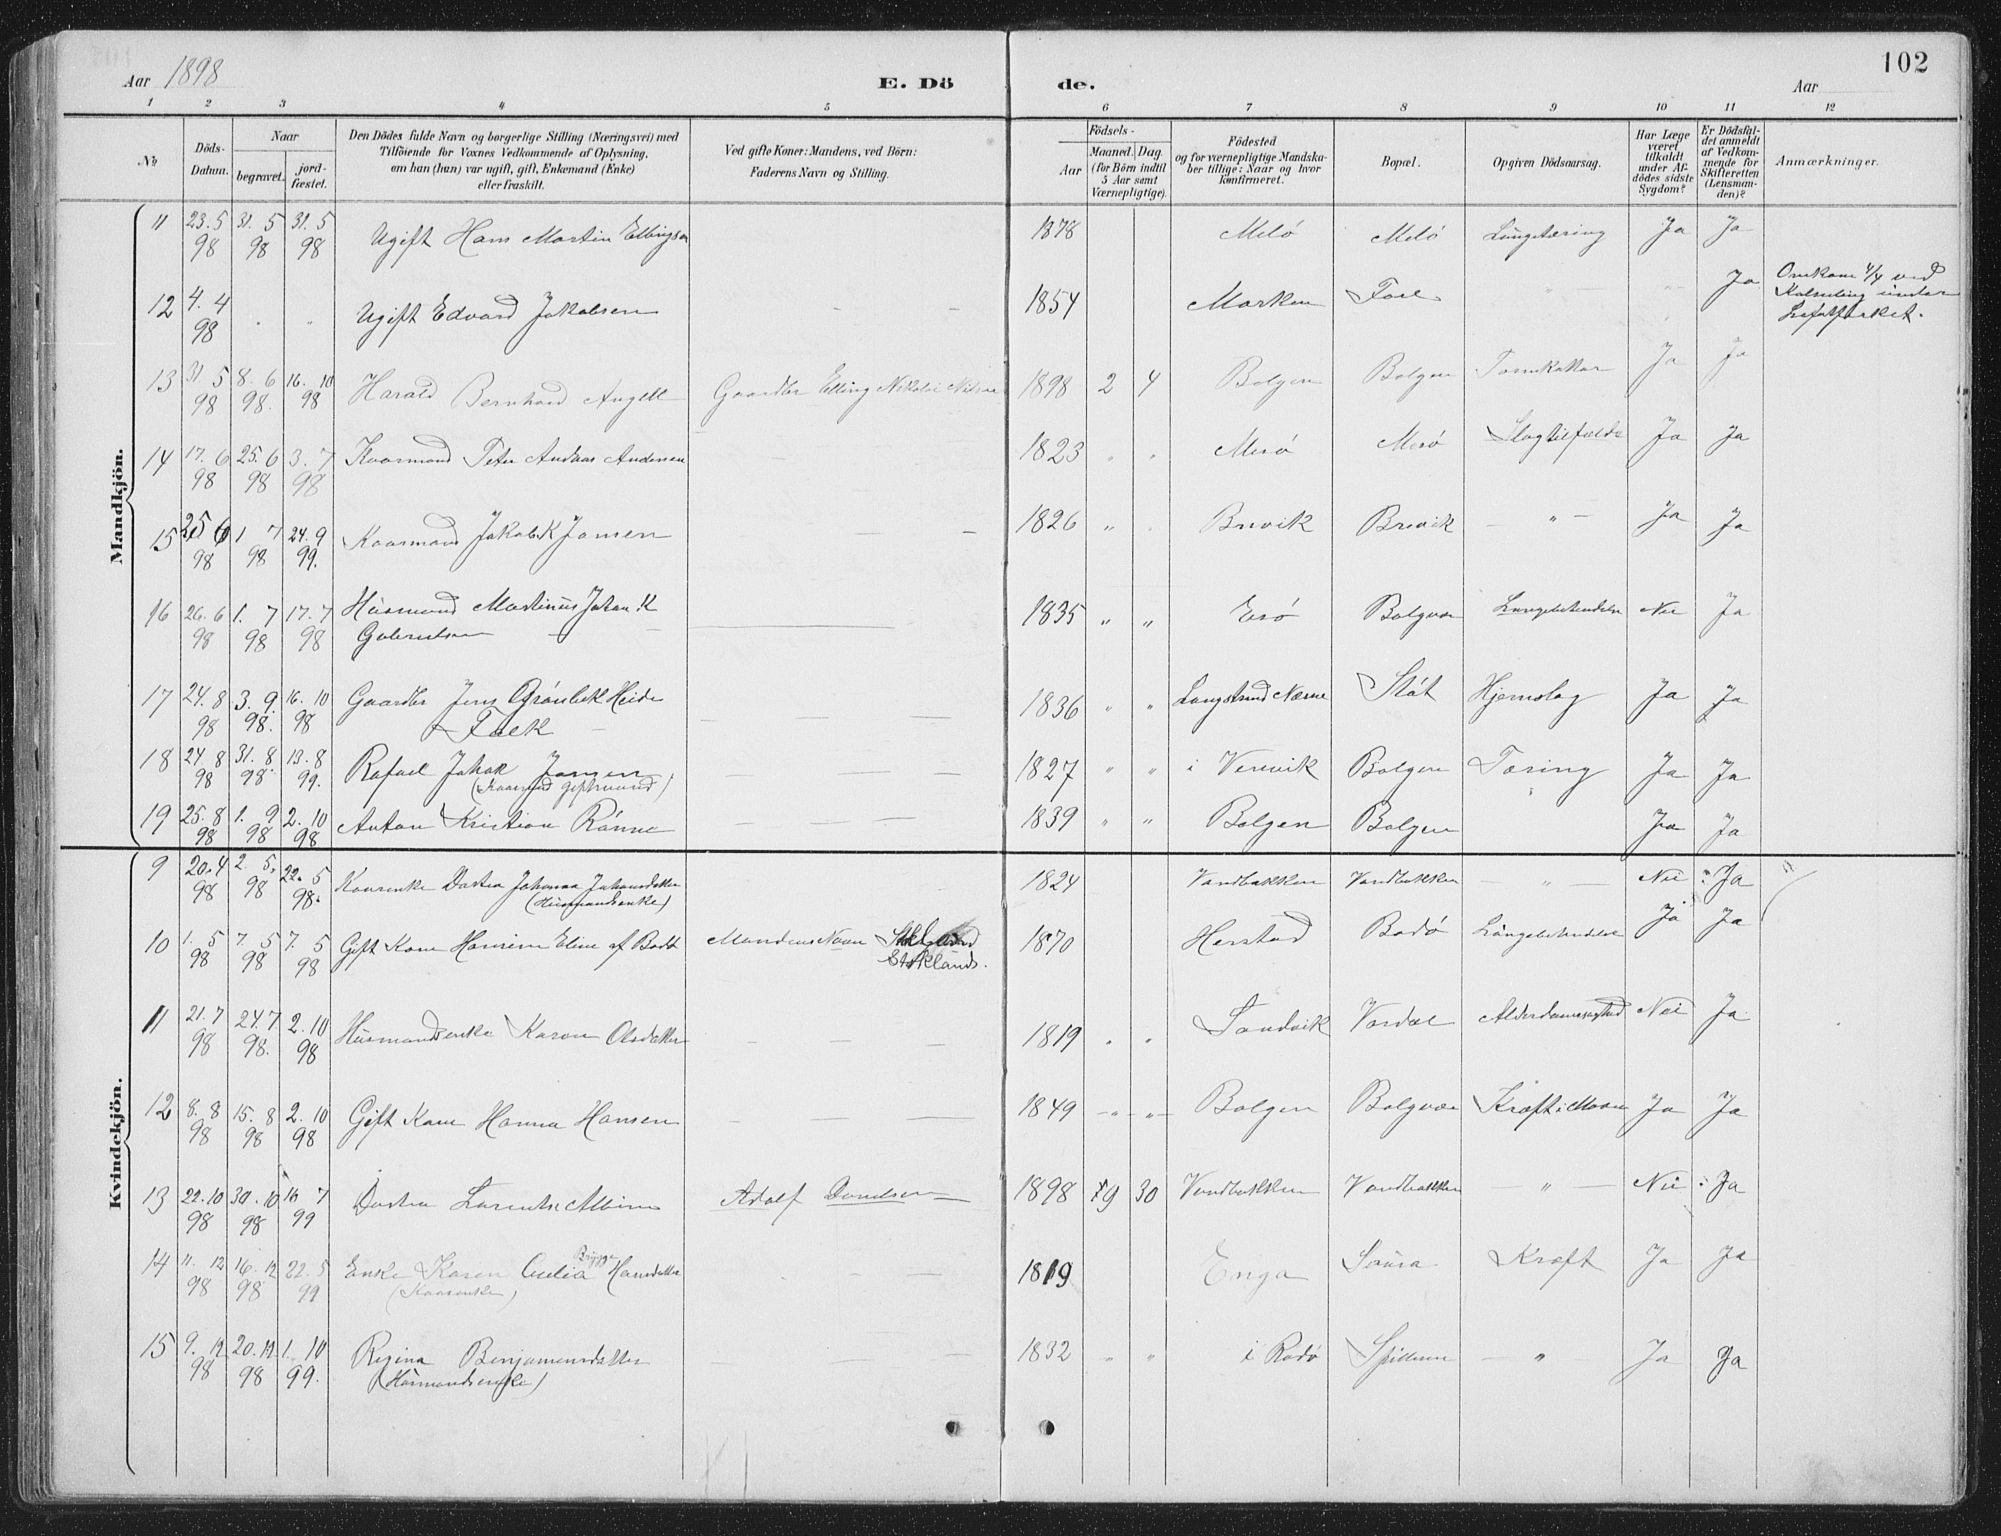 102
Aar 1898
E. Dö
de.
Aar
1 2 3 4 5 6 7 8 9 10 11 12
No
Döds-Datum.
Naar
begravet.
jord-fæstet.
Den Dödes fulde Navn og borgerlige Stilling (Næringsvei) med
Tilföiende for Voxnes Vedkommende af Oplysning,
om han (hun) var ugift, gift, Enkemand (Enke)
eller fraskilt.
Ved gifte Koner: Mandens, ved Börn:
Faderens Navn og Stilling.
Födsels-
Aar
Maaned. Dag
(for Börn indtil
5 Aar samt
Værnepligtige).
Födested
og for værnepligtige Mandska-
ber tillige: Naar og hvor
konfirmeret.
Bopæl.
Opgiven Dödsaarsag.
Har Læge
været
tilkaldt
under Af-
dödes sidste
Sygdom?
Er Dödsfal-
det anmeldt
af Vedkom-
mende for
Skifteretten
(Lensman-
den)?
Anmærkninger.
Mandkjön.
11 23.5 98 31.5 98 31.5 98 Ugift Hans Martin Ellingsen 1878 Melö Melö Lungetæring Ja Ja
12 4.4 98 " " Ugift Edvard Jakobsen — — 1854 Marken " — " Ja Omkom 4/4 ved
Kolseiling under
13 31 5 98 8.6 98. 16.10 98 Harald Bernhard Angell Gaardbr Elling Nikolai 1898 2 4 Bolgen Bolgen Ja Ja
14 17.6 98 25.6 98 3.7 98 Kaarmand Peter Andreas Andersen 1823 " " Mesö Mesö Slagtilfælde Ja Ja
15 25 6 98 1 7 98 24.9 99. Kaarmand Jakob K Jansen — — 1826 " " Brevik Brevik — " — Ja Ja
16 26.6 98 1.7 98 17.7 98 Husmand Martinus Johan K
Gabrielsen 1835 " " Esö Bolgvær Lungebetændelse Nei Ja
17 24.8 98 3.9. 98. 16.10 98 Gaardbr Jens Grönbek Heide
Falck — — — 1836 " " Stöt Hjerneslag Ja Ja
18 24.8 98 31.8 98. 13.8 99. Rafael Jakob Jansen
— — — 1827 " " i Bolgen Tæring Ja Ja
19 25.8 98 1.9 98 2.10 98 Anton Kristian Rönne — — — 1839 " " Bolgen Bolgen Ja Ja
Kvindekjön.
9 20.4 98 2.5. 98 22.5 98. Kaarenke Dortea Johanna Johansdatter
(Husmandsenke) 1824 Vandbakken Vandbakken — " — Nei Ja
10 1.5 98 7.5 98 7.5 98 Gift Kone Eline af Bodö Mandens Navn
Stoklands. 1870 Herstad Bodö Lungebetændelse Ja Ja
11 21.7 98 24.7 98. 2.10 98 Husmandsenke Karen Olsdatter — — — 1819 " " Sandvik Vardal Nei Ja
12 8.8 98 15.8 98 2.10 98 Gift Kone Hanna Hansen — — — 1849 — " — " — Bolgen Bolgvær Kræft i Maven Ja Ja
13 22.10 98 30.10 98 16 7 99 Dortea Adolf 1898 9 30 Vandbakken Vandbakken — " — Nei Ja
14 11.12 98 16.12 98 22.5 99 Enke Karen Brygge Hansdatter
(Kaarenke) — — 1819 Enga Kræft Ja Ja
15 9.12 98 20.12 98 1.10 99. Regina Benjaminsdatter
(Husmandsenke) — — 1832 " " i Rödö Spilderen — " — Ja Ja